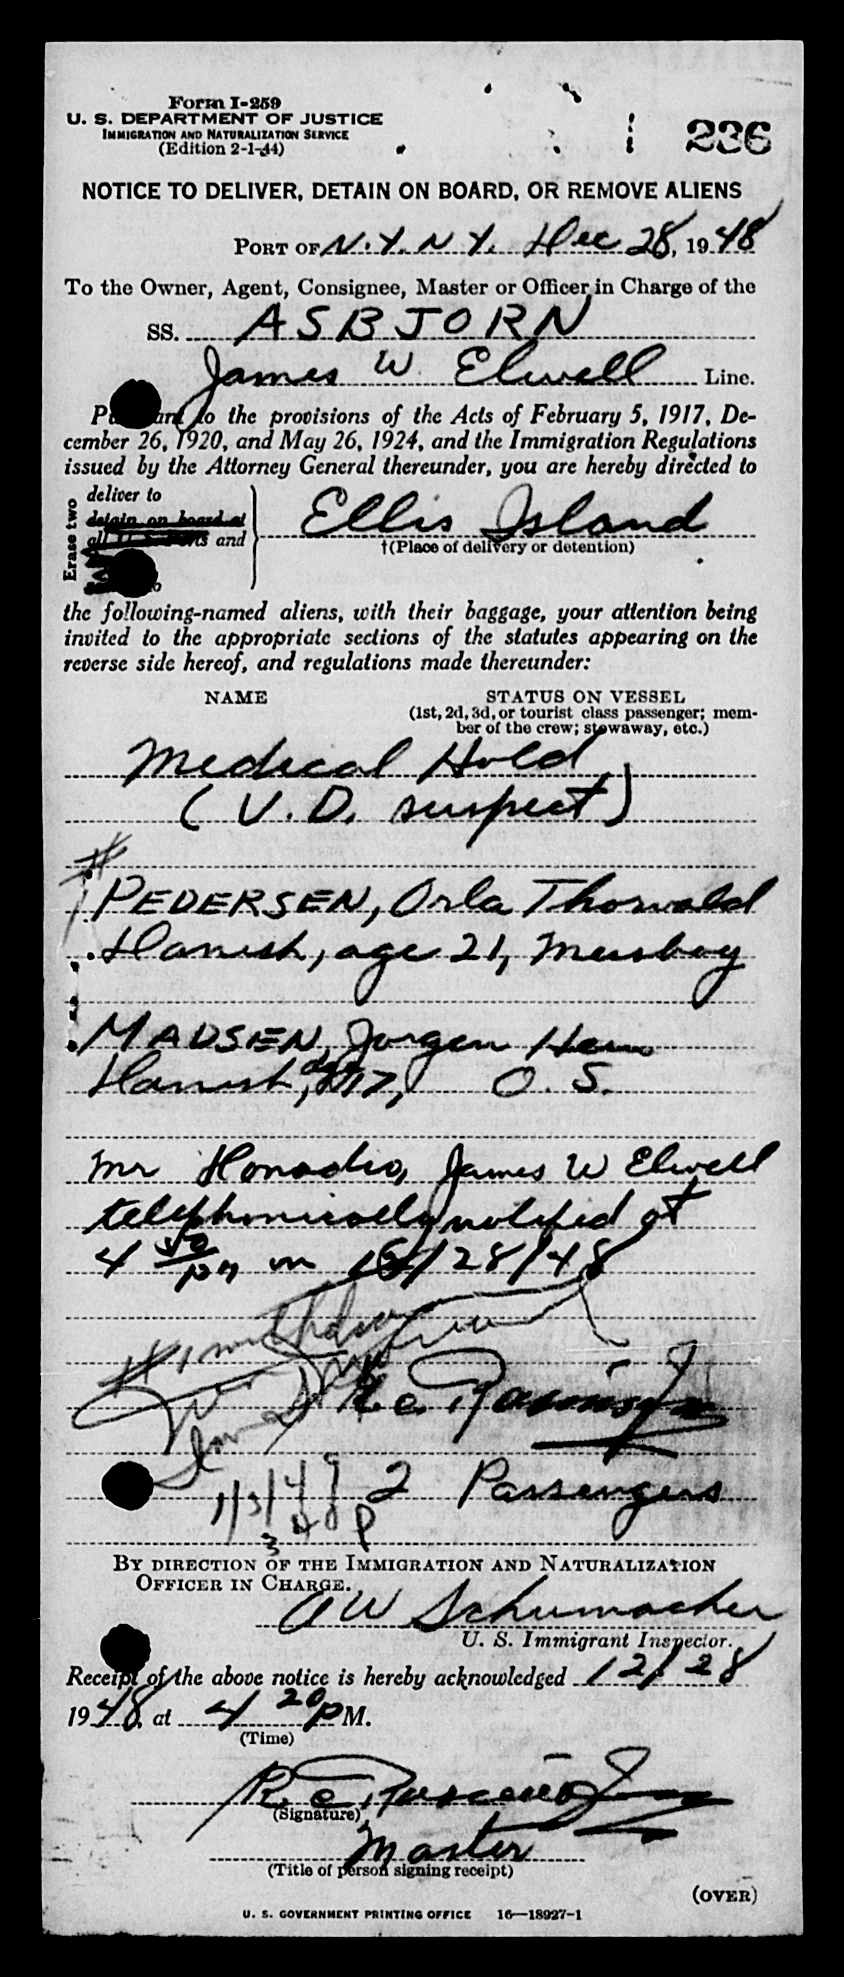 Form I-259
U. S. DEPARTMENT OF JUSTICE
IMMIGRATION AND NATURALIZATION SERVICE
(Edition 2-1-44)
236
NOTICE TO DELIVER, DETAIN ON BOARD, OR REMOVE ALIENS
PORT OF N.Y. N.Y. Dec 28, 1948
To the Owner, Agent, Consignee, Master or Officer in Charge of the
SS. ASBJORN
James W Elwell Line.
Pursuant to the provisions of the Acts of February 5, 1917, De-
cember 26, 1920, and May 26, 1924, and the Immigration Regulations
issued by the Attorney General thereunder, you are hereby directed to
Erase two
deliver to
detain on board at
all U. S. ports and
Ellis Island
†(Place of delivery or detention)
the following-named aliens, with their baggage, your attention being
invited to the appropriate sections of the statutes appearing on the
reverse side hereof, and regulations made thereunder:
NAME STATUS ON VESSEL
(1st, 2d, 3d, or tourist class passenger; mem-
ber of the crew; stowaway, etc.)
Medical Hold
(V.D. suspect)
#
1 PEDERSEN, Orla Thorvald
Danish, age 21, Messboy
MADSEN, Jorgen
Danish, age 17, O.S.
Mr James W Elwell
telephonically notified at
4 50 pm on 12/28/48
#1
1/3/49 2 Passengers
3 40 P
BY DIRECTION OF THE IMMIGRATION AND NATURALIZATION
OFFICER IN CHARGE.
A W Schumacher
U. S. Immigrant Inspector.
Receipt of the above notice is hereby acknowledged 12/28
1948, at 4 20 P M.
(Time)
(Signature)
Master
(Title of person signing receipt)
(OVER)
U. S. GOVERNMENT PRINTING OFFICE 16—18927-1